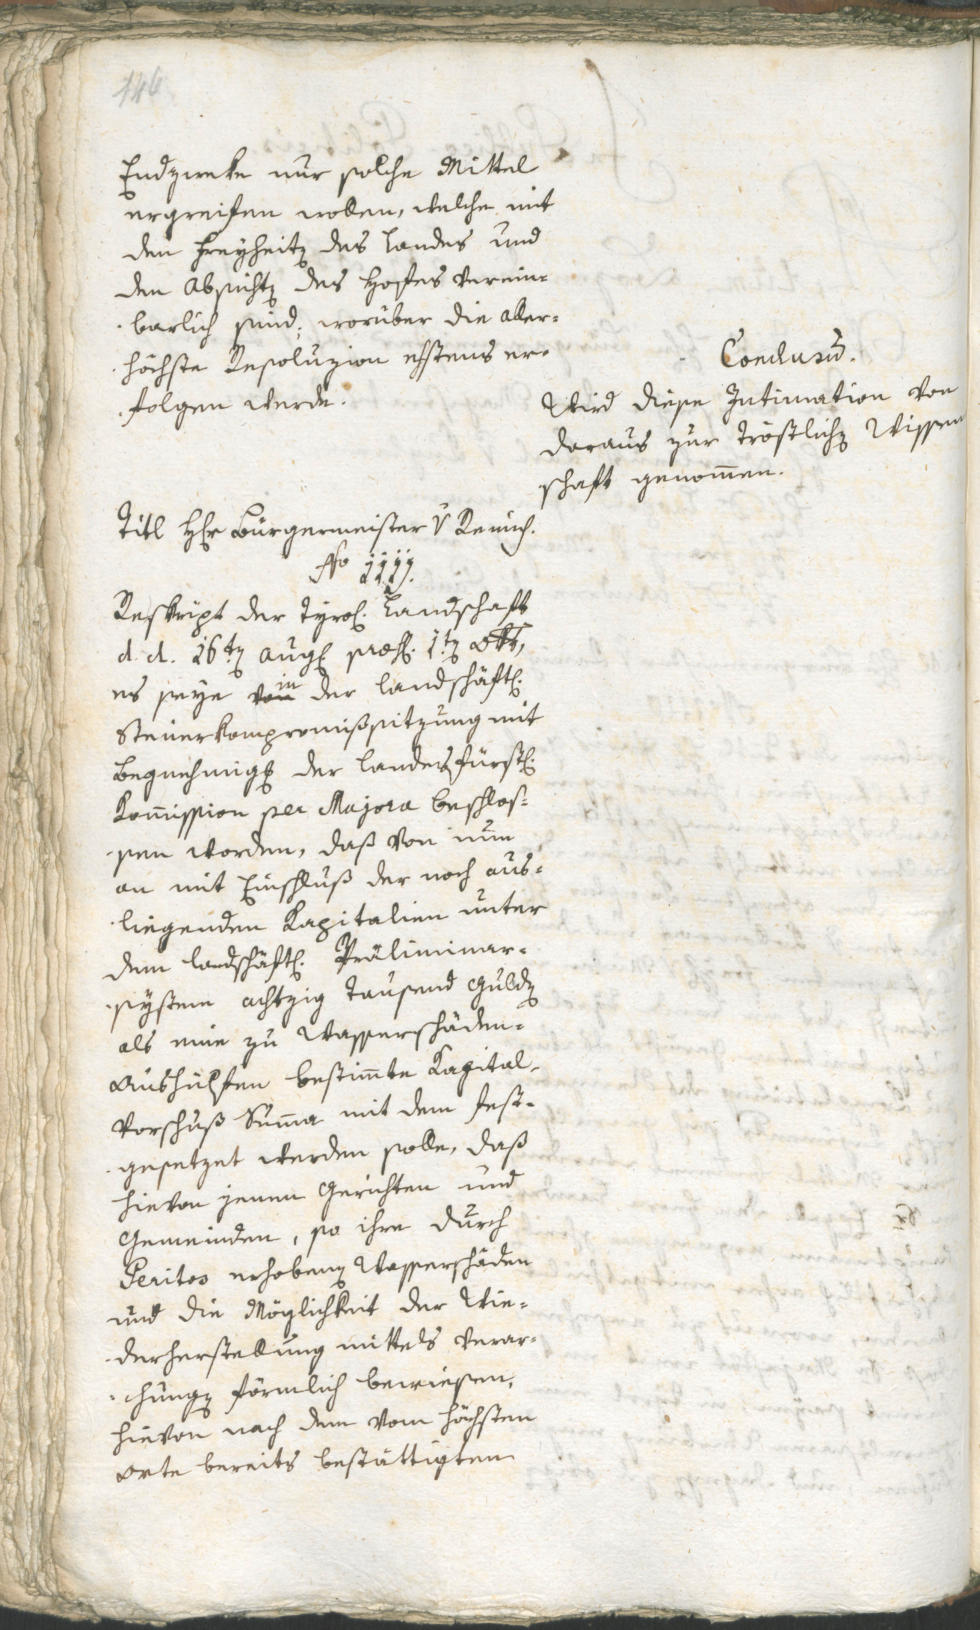 146
Endzweke nur solche Mittel
ergreifen wollen, welche mit
den Freyheitȝ des Landes und
den Absichtȝ des Hofes verein-
barlich sind; worüber die aller-
höchste Resoluzion ehstens er-
folgen werde.
Conclusũ.
Wird diese Intimation von
daraus zur tröstlichȝ Wissen
schaft genom̄en.
Titl Hr Bürgermeister v
Reskript der tyrol. Landschaft
d. d. 16tȝ Augl praes. 1tȝ 8br,
es seye von in der landschäftl.
Steuerkompromißsitzung mit
Begnehmigg der landesfürstl.
Kom̄ission per Majora beschlos-
sen worden, daß von nun
an mit Einschluß der noch aus-
liegenden Kapitalien unter
dem landschäftl. Präliminar-
system achtzig tausend Guldȝ
als eine zu Wasserschäden-
Aushülfen bestim̄te Kapital-
Vorschuß Sum̄a mit dem fest-
gesetzet werden solle, daß
hievon jenen Gerichten und
Gemeinden, so ihre durch
Peritos erhobenȝ Wasserschäden
und die Möglichkeit der Wie-
derherstellung mittels Verar-
chungȝ förmlich bewiesen,
hievon nach dem vom höchsten
Orte bereits bestättigten